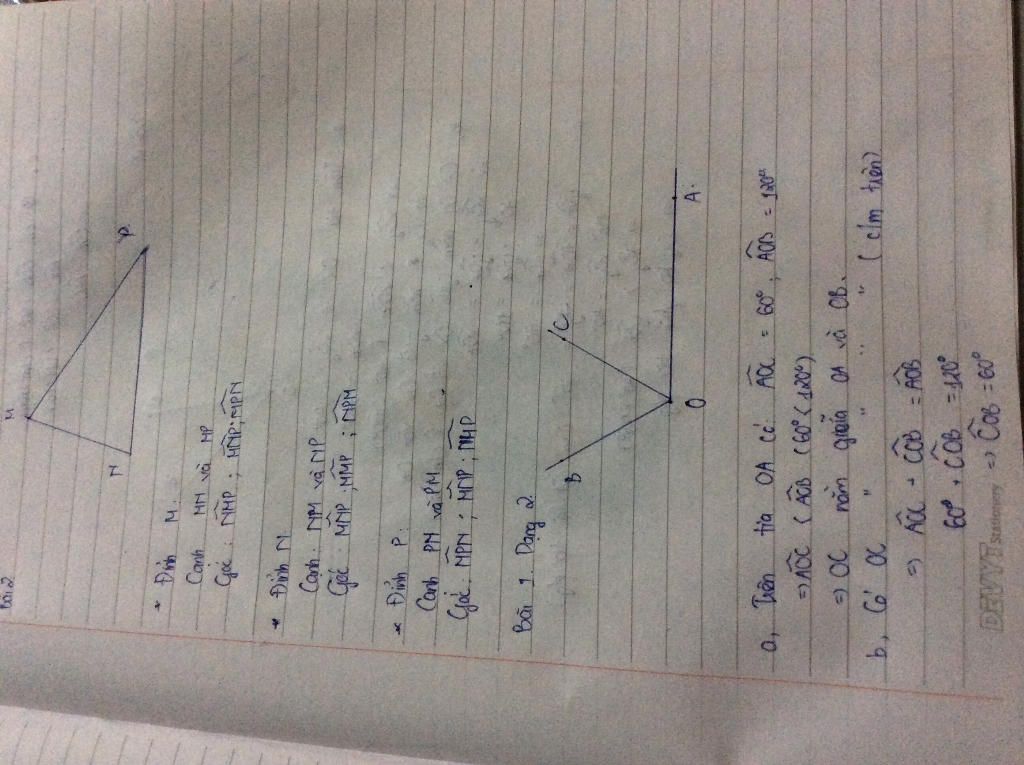 Bài 2
M
N
P
* Đỉnh M.
Cạnh MN và MP
Góc : NMP ; MNP ; MPN
* Đỉnh N
Cạnh : NM và NP
Góc : MNP ; NMP ; MPN
* Đỉnh P.
Cạnh PN và PM
Góc : MPN ; MNP ; NMP
Bài 1. Dạng 2
B
C
O
A.
a, Trên tia OA có AOC = 60°, AOB = 120°
=> AOC < AOB (60° < 120°)
=> OC nằm giữa OA và OB.
b, Có OC " " " " (c/m trên)
=> AOC + COB = AOB
60° + COB = 120°
=> COB = 60°
DEVYT Stationery